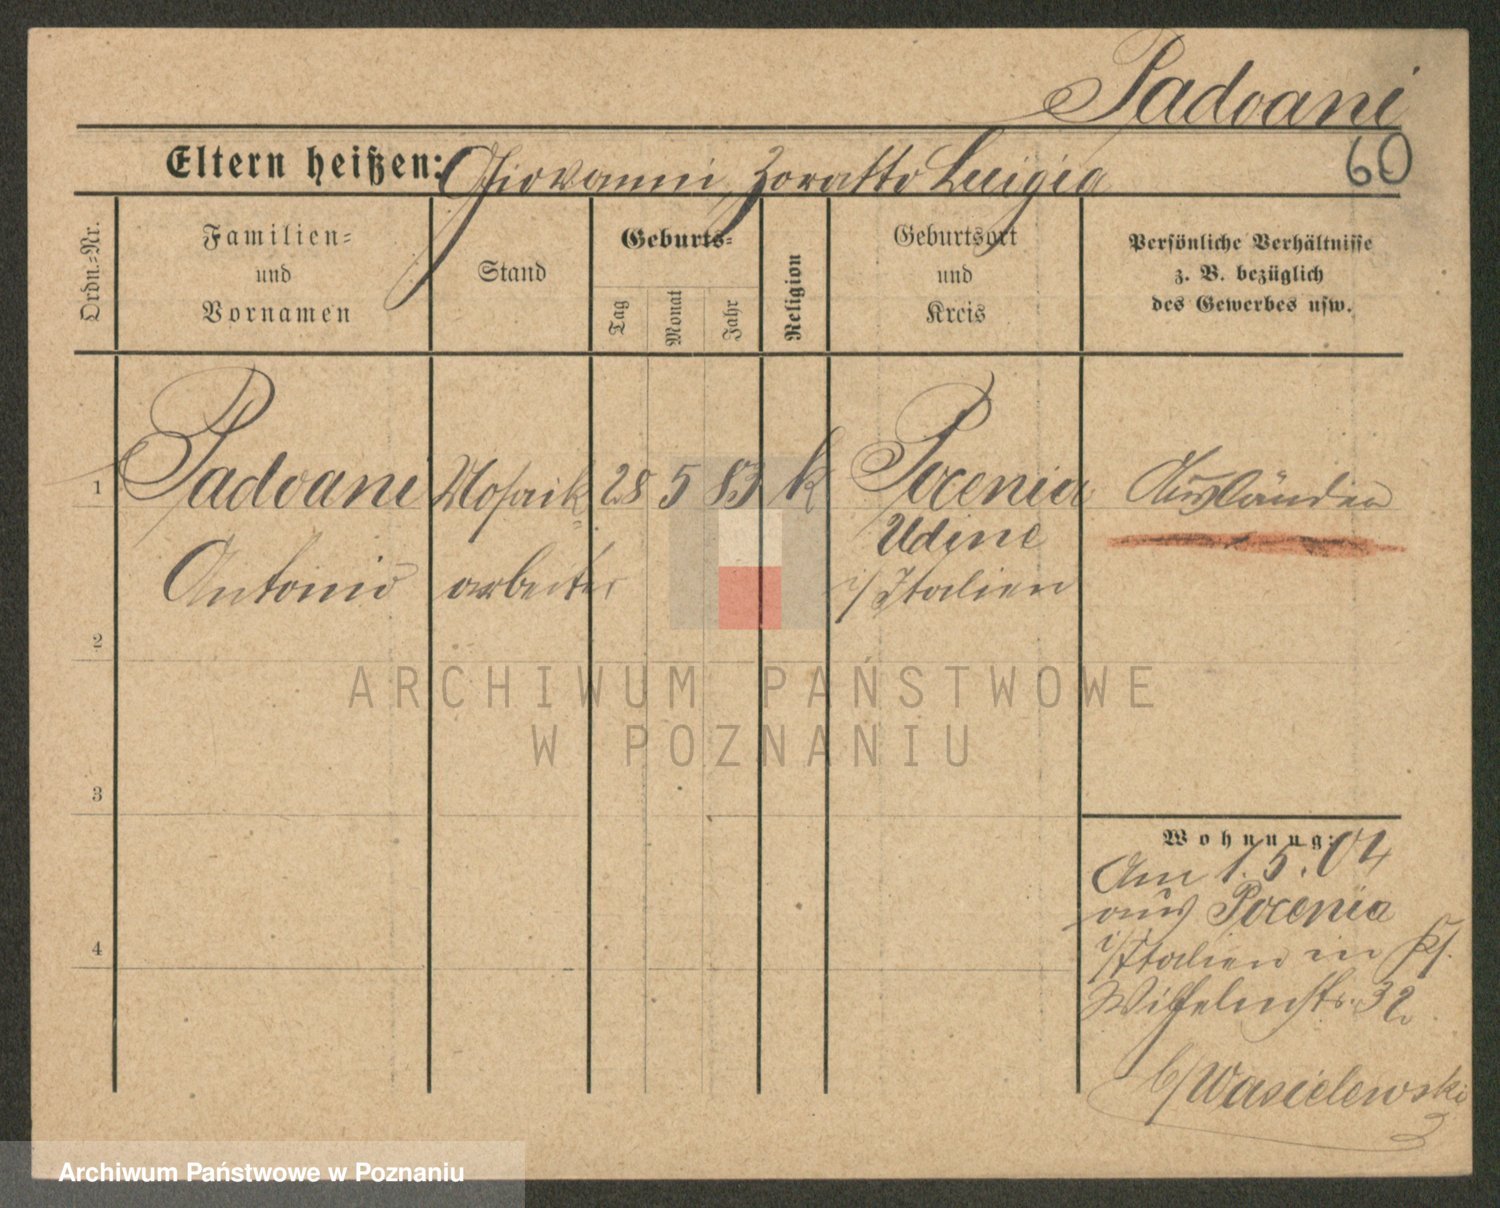 Padovani
60
Eltern heißen: Giovanni, Zoratto Luigia
Ordn.-Nr.
Familien-
und
Vornamen
Stand
Geburts-
Tag
Monat
Jahr
Religion
Geburtsort
und
Kreis
Persönliche Verhältnisse
z. B. bezüglich
des Gewerbes usw.
1 Padovani Mosaik- 28 5 83 k Pocenia Ausländer
Udine
Antonio arbeiter i/Italien
2
3
4
Wohnung:
Am 1.5.04
aus Pocenia
i/Italien in
Wilhelmstr. 32
b/Wasielewski
ARCHIWUM PAŃSTWOWE
W POZNANIU
Archiwum Państwowe w Poznaniu